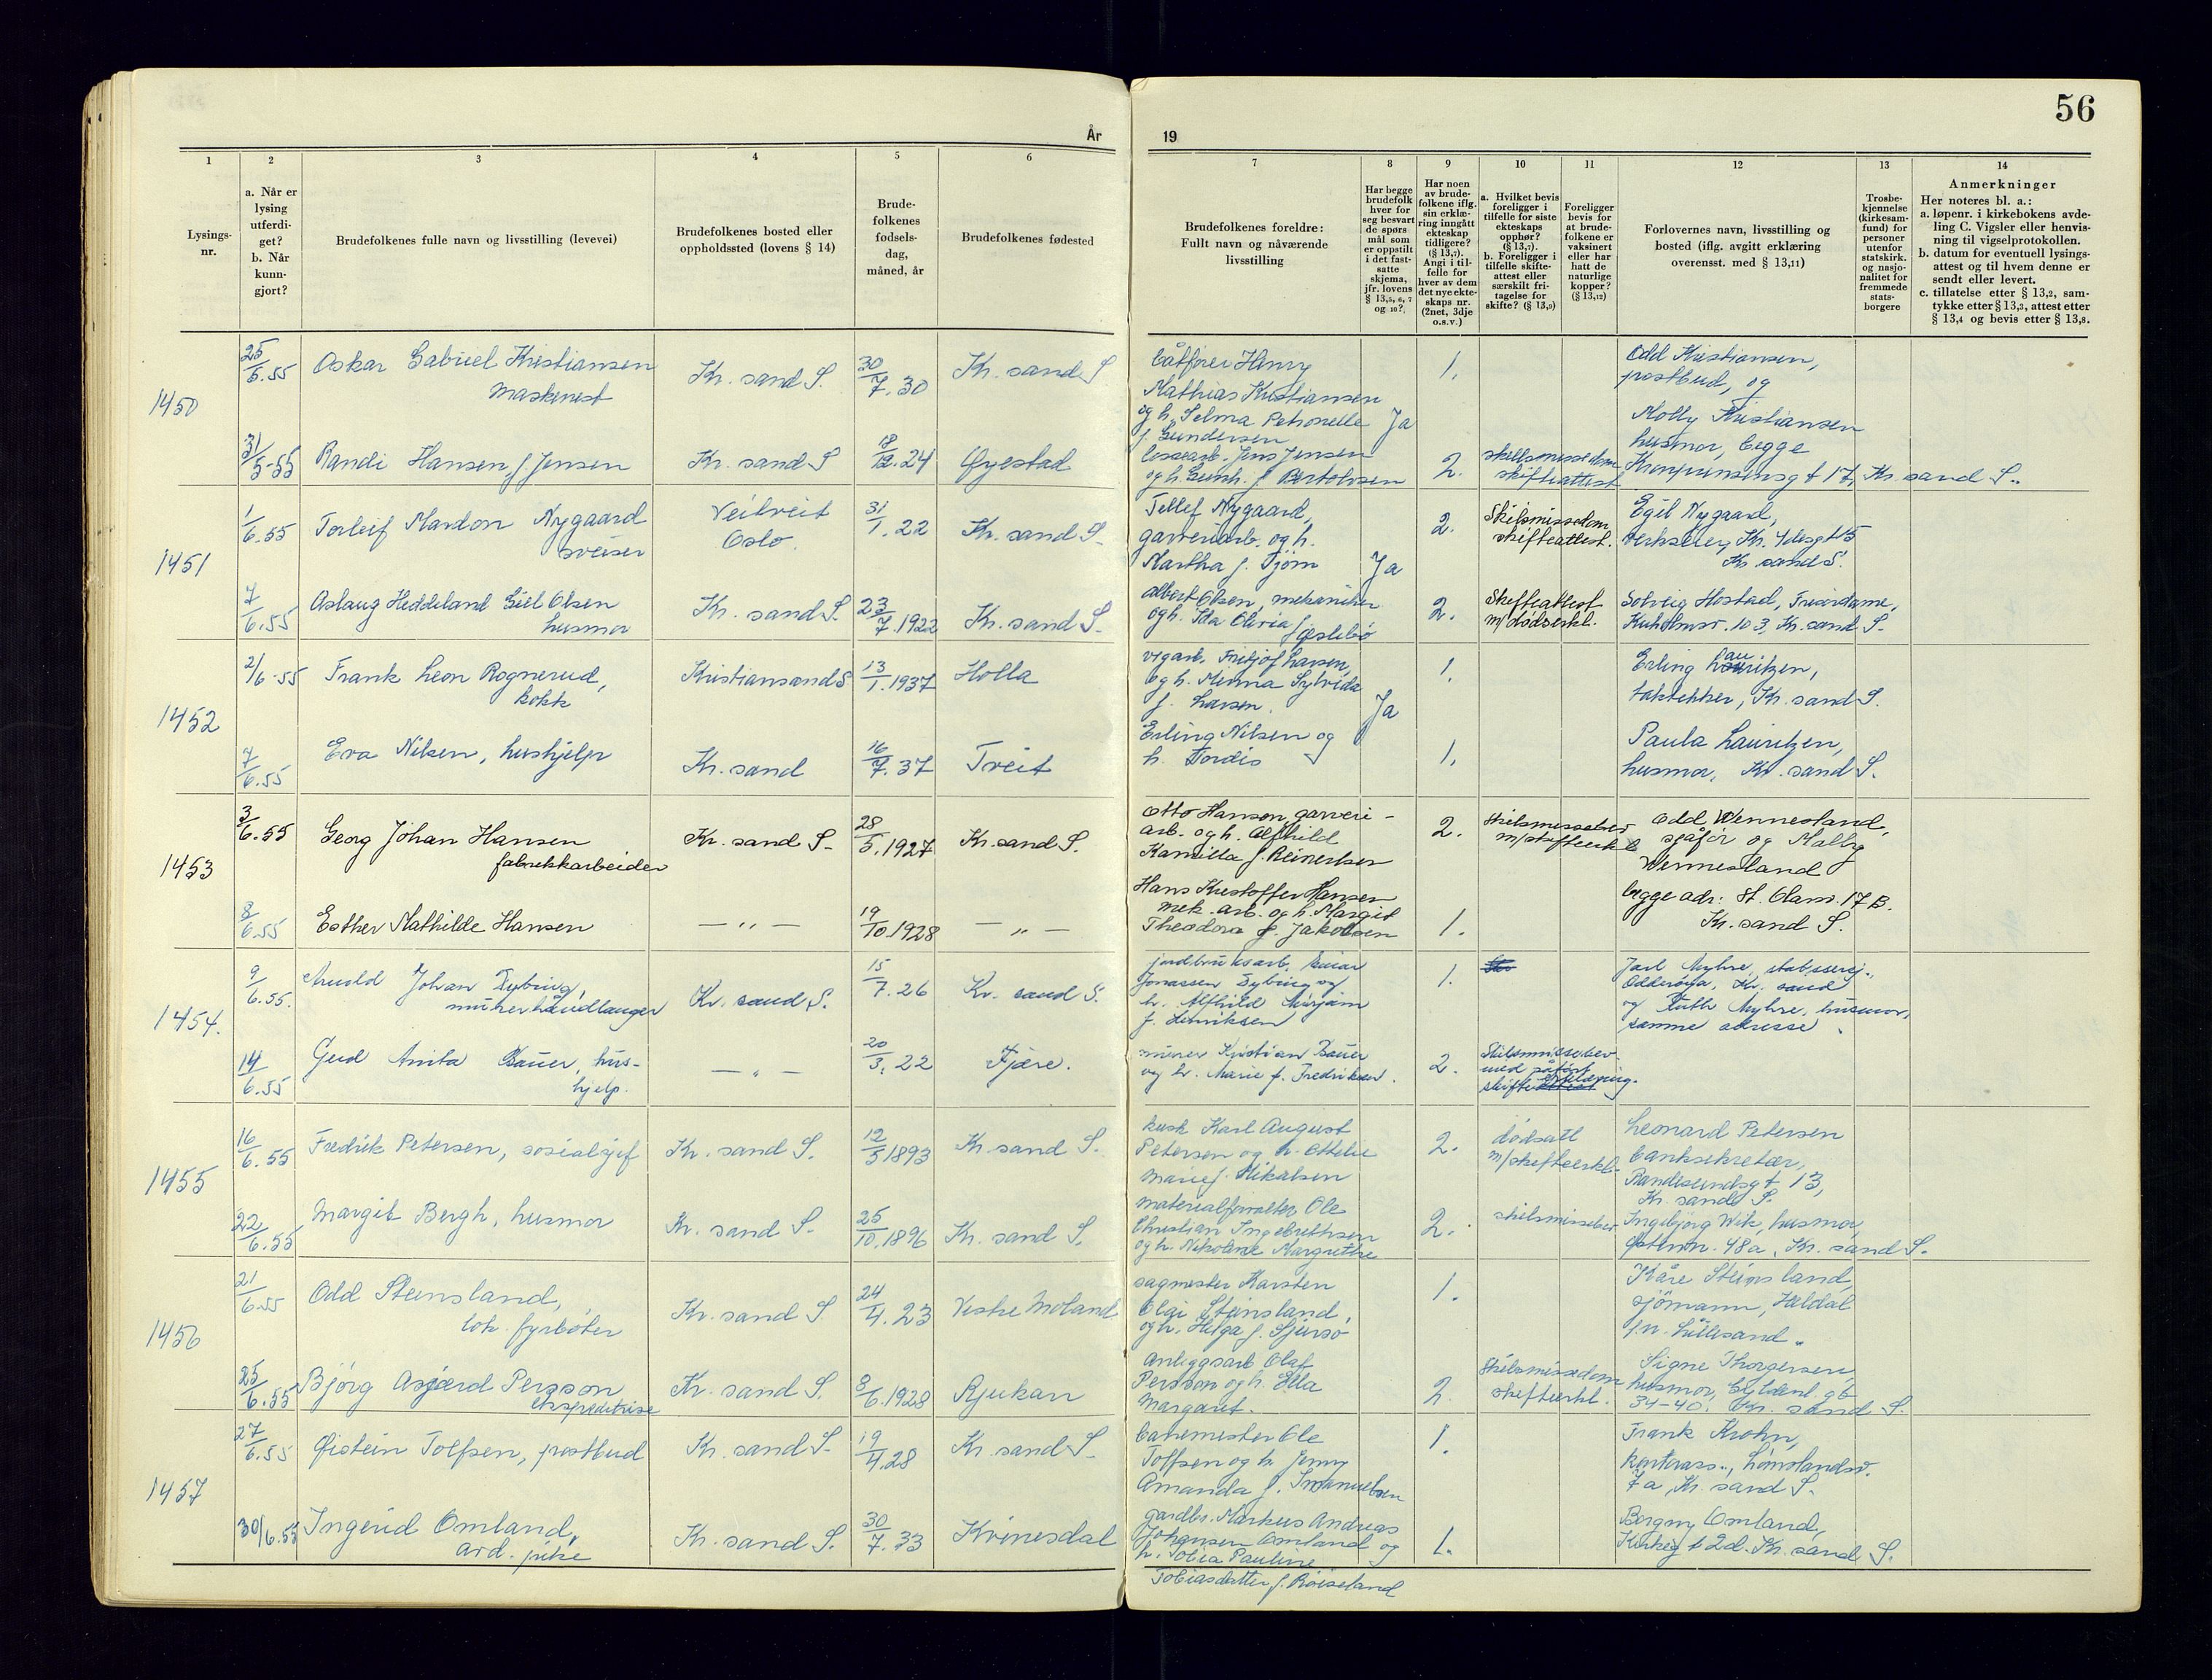 56
År
19
1
2
3
4
5
6
7
8
9
10
11
12
13
14
Lysings-
nr.
a. Når er
lysing
utferdi-
get?
b. Når
kunn-
gjort?
Brudefolkenes fulle navn og livsstilling (levevei)
Brudefolkenes bosted eller
oppholdssted (lovens § 14)
Brude-
folkenes
fødsels-
dag,
måned, år
Brudefolkenes fødested
Brudefolkenes foreldre:
Fullt navn og nåværende
livsstilling
Har begge
brudefolk
hver for
seg besvart
de spørs-
mål som
er oppstilt
i det fast-
satte
skjema,
jfr. lovens
§ 13,5, 6, 7
og 10?
Har noen
av brude-
folkene iflg.
sin erklæ-
ring inngått
ekteskap
tidligere?
(§ 13,7).
Angi i til-
felle for
hver av dem
det nye ekte-
skaps nr.
(2net, 3dje
o.s.v.)
a. Hvilket bevis
foreligger i
tilfelle for siste
ekteskaps
opphør?
(§ 13,7).
b. Foreligger i
tilfelle skifte-
attest eller
særskilt fri-
tagelse for
skifte? (§ 13,9)
Foreligger
bevis for
at brude-
folkene er
vaksinert
eller har
hatt de
naturlige
kopper?
(§ 13,12)
Forlovernes navn, livsstilling og
bosted (iflg. avgitt erklæring
overensst. med § 13,11)
Trosbe-
kjennelse
(kirkesam-
fund) for
personer
utenfor
statskirk.
og nasjo-
nalitet for
fremmede
stats-
borgere
Anmerkninger
Her noteres bl. a.:
a. løpenr. i kirkebokens avde-
ling C. Vigsler eller henvis-
ning til vigselprotokollen.
b. datum for eventuell lysings-
attest og til hvem denne er
sendt eller levert.
c. tillatelse etter § 13,2, sam-
tykke etter § 13,3, attest etter
§ 13,4 og bevis etter § 13,8.
1450
25/5.55 Oskar Gabriel Kristiansen
maskinist
Kr. sand S.
30/7.30
Kr. sand S
båtfører Henry
Mathias Kristiansen
og h. Selma Petronelle
f. Gundersen
Ja
1.
Odd Kristiansen,
postbud, og
Molly Kristiansen
husmor, begge
Kronprinsensgt 17, Kr. sand S.
31/5-55 Randi Hansen f. Jensen
Kr. sand S
18/12.24
Øyestad
lossearb. Jens Jensen
og h. Gunh. f Bertelsen
2.
skillsmissedom
skifteattest
1451
1/6.55 Torleif Mardon Nygaard
sveiser
Veitveit
Oslo.
31/1.22
Kr. sand S-
Tellef Nygaard,
garveriarb. og h.
Martha f. Tjøm
Ja
2.
Skilsmissedom
skifteattest.
Egil Nygaard,
verkseier, Kr. 4desgt 45
Kr sand S.
7/6.55 Aslaug Heddeland Giel Olsen
husmor
Kr. sand S.
23/7.1922
Kr. sand S-
Albert Olsen, mekaniker
og h. Ida Olivia f
2.
Skifteattest
m/dødserkl.
Solveig Hostad, Frisørdame,
Kuholmsv. 103, Kr. sand S-
1452
2/6-55 Frank Leon Rognerud,
kokk
Kristiansand S
13/1.1937
Holla
vegarb. Fritjof Larsen
og h. Minna Sylvida
f. Larsen.
Ja
1.
Erling Lauritzen,
taktekker, Kr. sand S.
7/6.55 Eva Nilsen, hushjelp
Kr. sand
16/7.37
Tveit
Erling Nilsen og
h. Tordis
1.
Paula Lauritzen,
husmor, Kr. sand S.
1453
3/6.55 Georg Johan Hansen
fabrikkarbeider
Kr. sand S-
28/5.1927
Kr. sand S.
Otto Hansen, garveri-
arb. og h. Alfhild
Kamilla f. Reinertsen
2.
Skilsmissebev
m/skifteerkl
Odd Wennesland,
sjåfør og Malby
Wennesland
begge adr: St. Olavs. 17 B.
Kr. sand S.
8/6.55 Esther Mathilde Hansen
— " —
19/10.1928
— " —
Hans Kristoffer Hansen
mek. arb. og h. Margit
Theodora f. Jakobsen
1.
1454.
9/6.55. Arnold Johan Tybring,
murerhåndlanger
Kr. sand S.
15/7.26
Kr. sand S.
jordbruksarb. Einar
Jonassen Tybring og
h. Alfhild Mirjam
f. Henriksen
1.
Jarl Myhre, stabssersj.,
Odderøya, Kr. sand
og Ruth Myhre, husmor,
samme adresse
14/6.55 Gud Anita Bauer, hus-
hjelp.
— " —
20/3.22
Fjære.
murer Kristian Bauer
og h. Marie f. Fredriksen.
2.
Skilsmissebev.
med påført
skifteerklæring.
1455
16/6.55 Fredrik Petersen, sosialsjef
Kr. sand S.
12/5 1893
Kr. sand S.
kusk Karl August
Petersen og h. Ottelie
Marie f. Mikalsen
2.
dødsatt
m/skifteerkl.
Leonard Petersen
banksekretær,
Randesundsgt 13,
Kr. sand S.
22/6.55 Margit Bergh, husmor
Kr. sand S.
25/10.1896
Kr. sand S.
materialforvalter Ole
Christian Ingebrethsen
og h. Nikoline Margrethe
2.
skilsmissebev
Ingebjørg Wik, husmor,
Østervn. 48a, Kr. sand S.
1456
21/6.55 Odd Steinsland,
lok. fyrbøter
Kr. sand S.
24/4.23
Vestre Moland
sagmester Karsten
Olai Steinsland,
og h. Helga f. Sjursø
1.
Kåre Steinsland,
sjømann, Heldal
p.n. Lillesand.
25/6.55 Bjørg Asgjærd Persson
ekspeditrise
Kr. sand S.
8/6.1928
Rjukan
Anleggsarb Olaf
Persson og h. Ella
Margaret.
2
Skilsmissedom
skifteerkl.
Signe Thorgersen,
husmor, Gyldenl. gt
34-40. Kr. sand S.
1457
27/6.55 Øistein Tolfsen, postbud
Kr. sand S-
19/4.28
Kr. sand S-
banemester Ole
Tolfsen og h. Jenny
Amanda f. Imanuelsen
1.
Frank Krohn,
kontorass., Lømslandsv.
7a, Kr. sand S.
30/6.55 Ingerid Omland,
ard. pike
Kr. sand S.
30/7.33
Kvinesdal
gardbr. Markus Andreas
Johansen Omland og
h. Tobia Pauline
Tobiasdatter f. Røiseland
1.
Bergny Omland,
Kirkegt 2d. Kr. sand S.